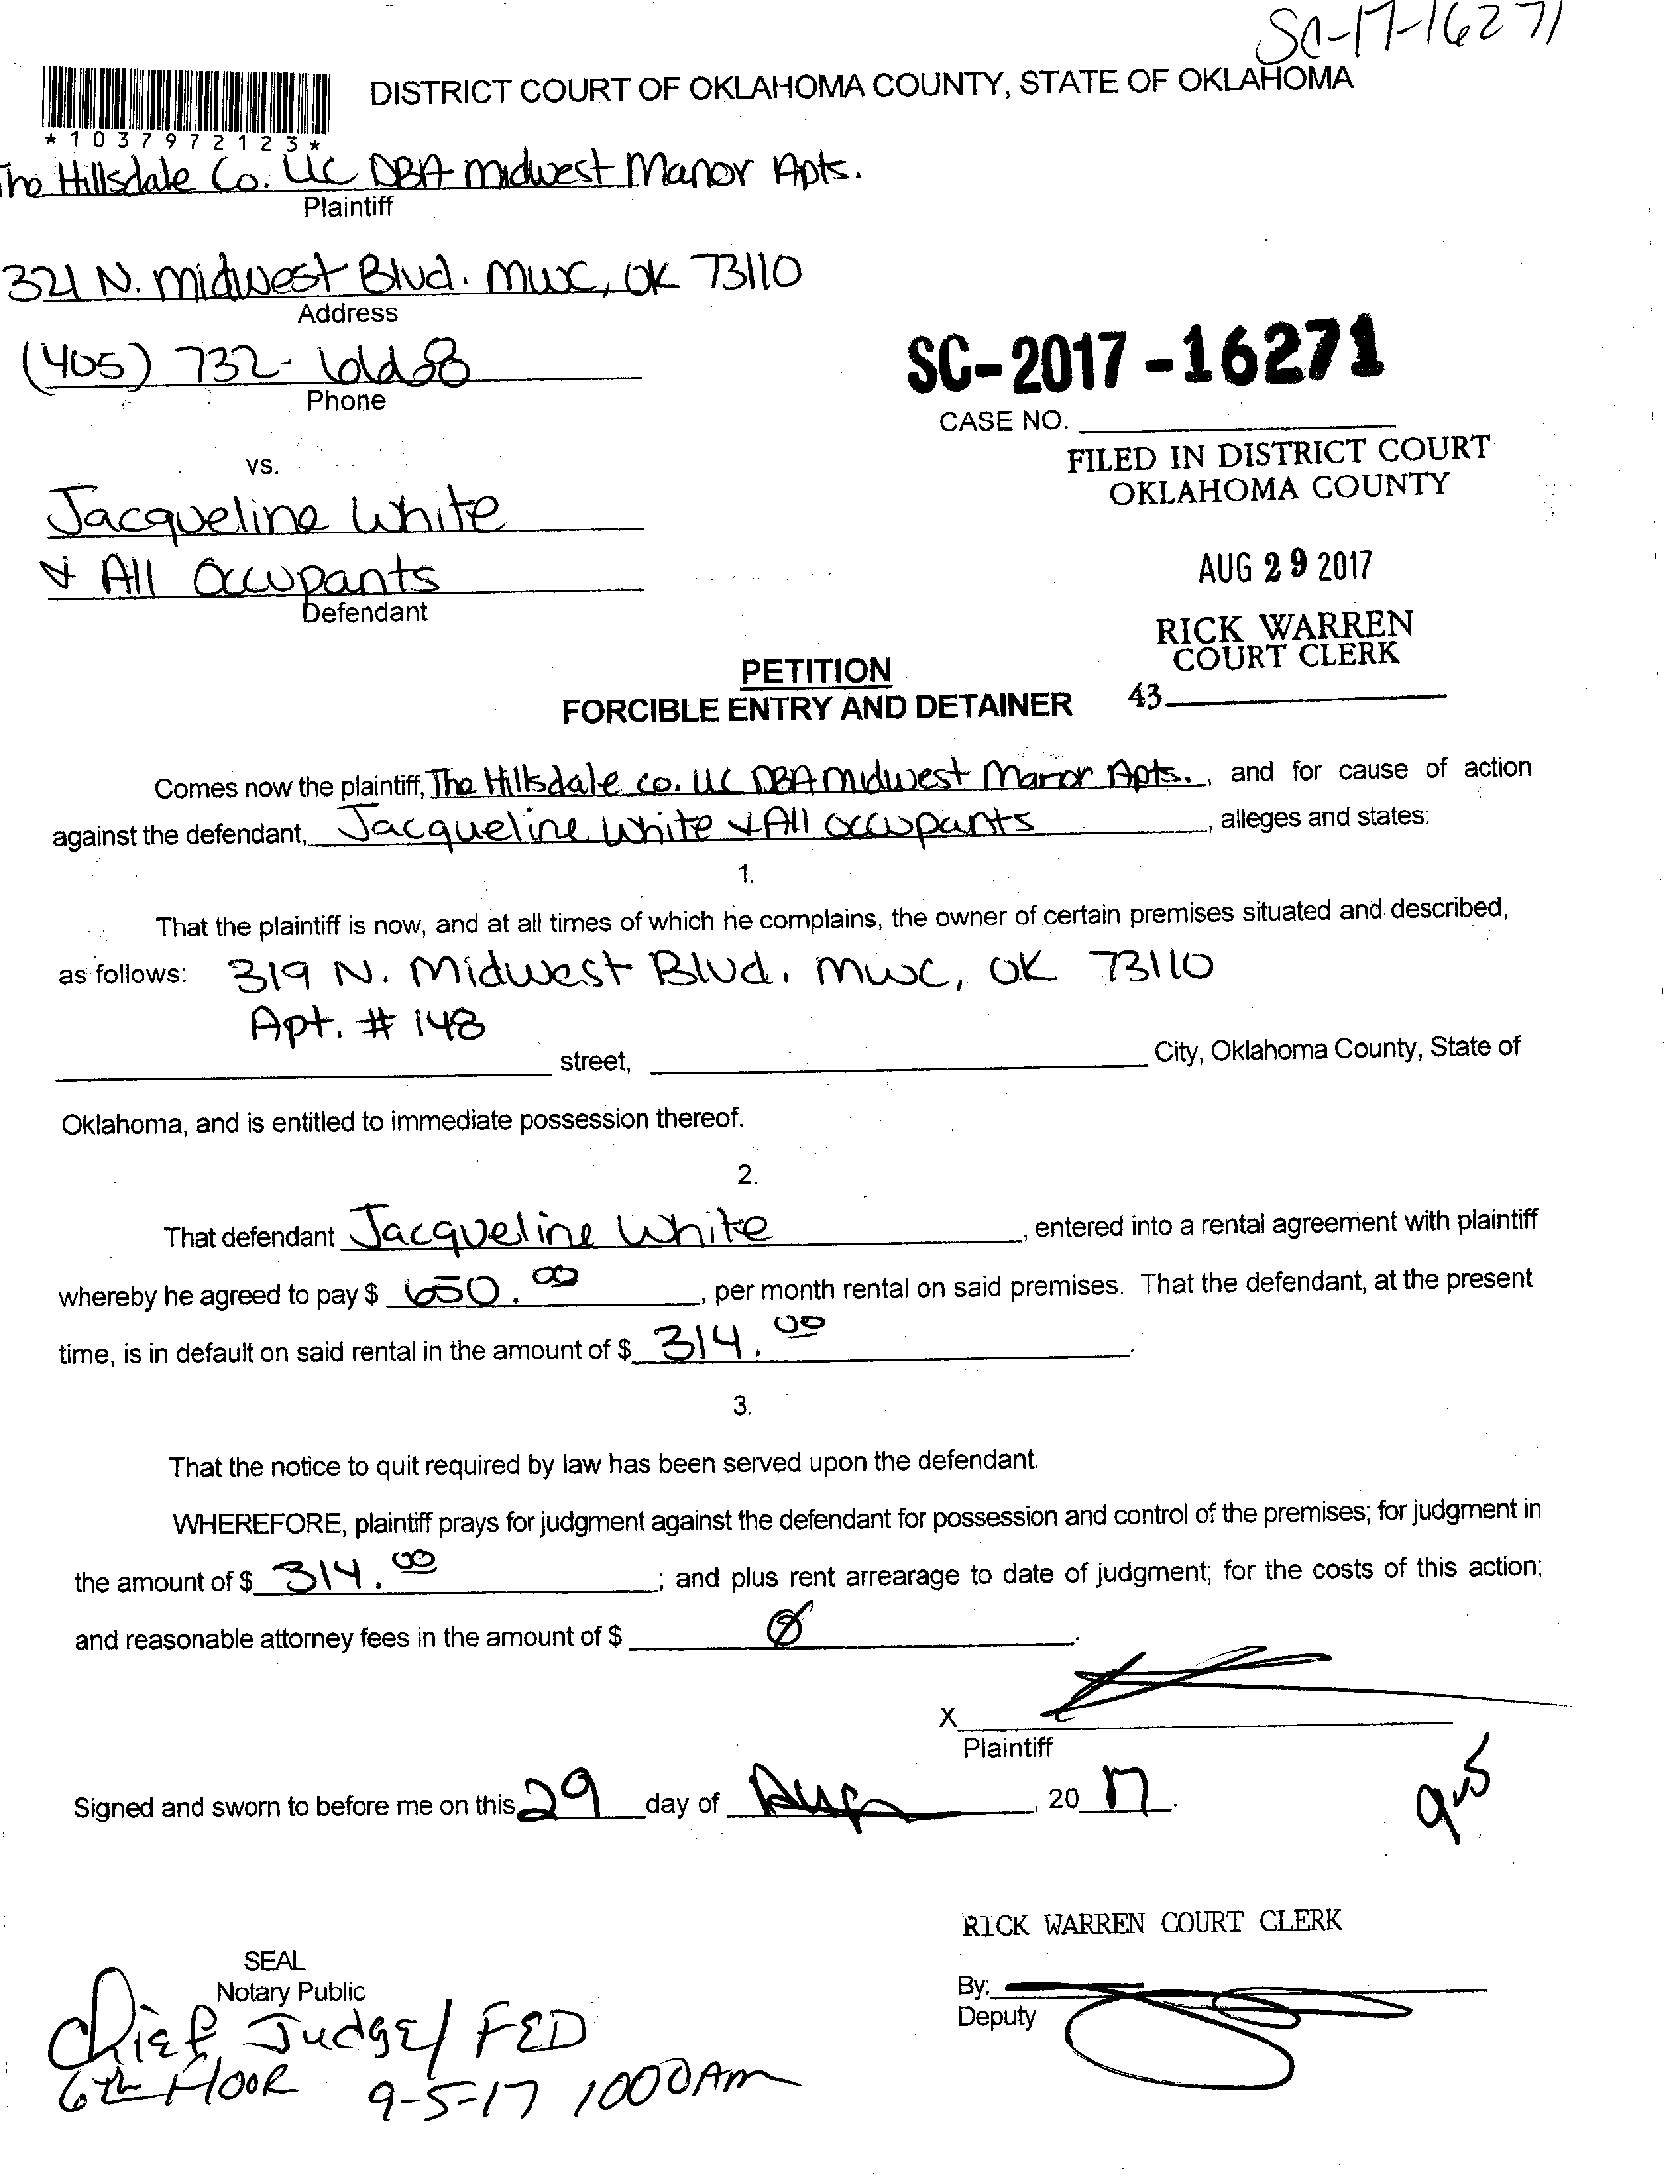 SC-17-16271
DISTRICT COURT OF OKLAHOMA COUNTY, STATE OF OKLAHOMA
*1037972123*
The Hillsdale Co. LLC DBA Midwest Manor Apts.
Plaintiff
321 N. Midwest Blvd. MWC, OK 73110
Address
(405) 732-
Phone
SC-2017-16271
CASE NO.
FILED IN DISTRICT COURT
OKLAHOMA COUNTY
vs.
Jacqueline White
& All Occupants
Defendant
AUG 29 2017
RICK WARREN
COURT CLERK
43
PETITION
FORCIBLE ENTRY AND DETAINER
Comes now the plaintiff, The Hillsdale Co. LLC DBA Midwest Manor Apts., and for cause of action
against the defendant, Jacqueline White & All occupants, alleges and states:
1.
That the plaintiff is now, and at all times of which he complains, the owner of certain premises situated and described,
as follows: 319 N. Midwest Blvd. MWC, OK 73110
Apt. # 148
street, City, Oklahoma County, State of
Oklahoma, and is entitled to immediate possession thereof.
2.
That defendant Jacqueline White, entered into a rental agreement with plaintiff
whereby he agreed to pay $ 650.00, per month rental on said premises. That the defendant, at the present
time, is in default on said rental in the amount of $ 314.00.
3.
That the notice to quit required by law has been served upon the defendant.
WHEREFORE, plaintiff prays for judgment against the defendant for possession and control of the premises; for judgment in
the amount of $ 314.00; and plus rent arrearage to date of judgment; for the costs of this action;
and reasonable attorney fees in the amount of $ Ø.
X
Plaintiff
Signed and sworn to before me on this 29 day of Aug, 20 17.
RICK WARREN COURT CLERK
SEAL
Notary Public
By:
Deputy
Chief Judge/ FED
6th Floor 9-5-17 1000AM